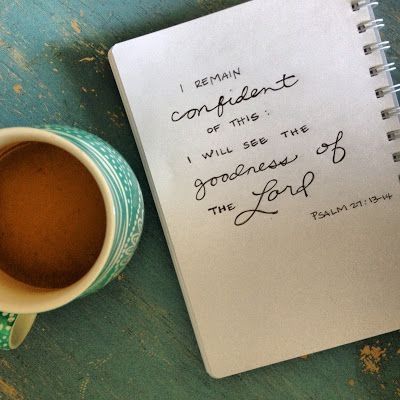 I REMAIN
confident
OF THIS:
I WILL SEE THE
goodness of
THE Lord
PSALM 27:13-14